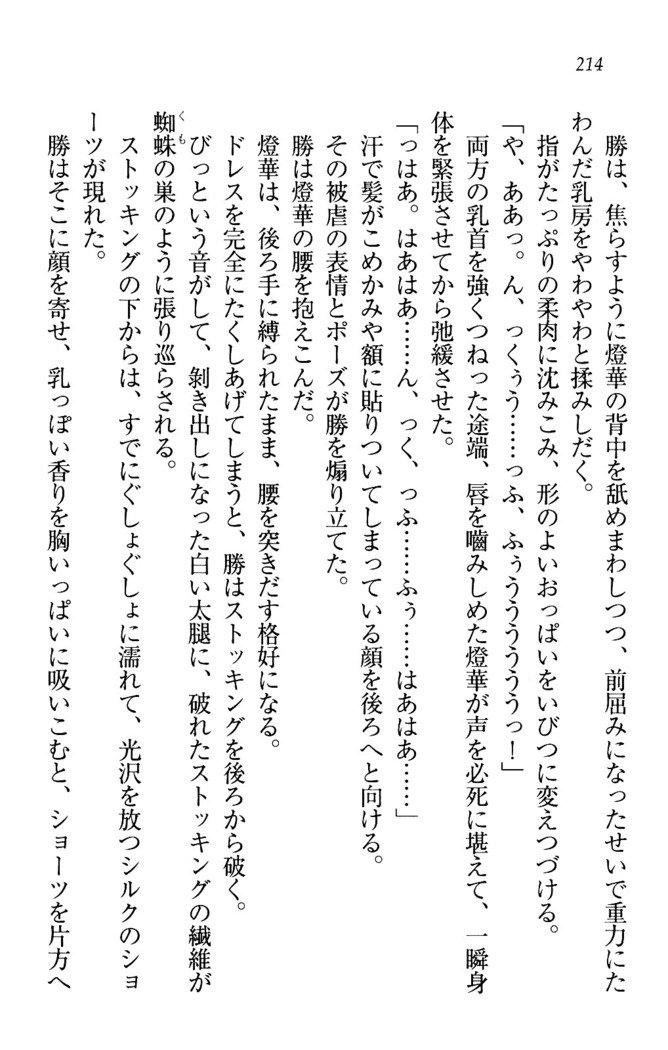 214
勝は、焦らすように燈華の背中を舐めまわしつつ、前屈みになったせいで重力にた
わんだ乳房をやわやわと揉みしだく。
指がたっぷりの柔肉に沈みこみ、形のよいおっぱいをいびつに変えつづける。
「や、ああっ。ん、っくぅう……っふ、ふぅううううううっ！」
両方の乳首を強くつねった途端、唇を嚙みしめた燈華が声を必死に堪えて、一瞬身
体を緊張させてから弛緩させた。
「っはあ。はあはあ……ん、っく、っふ……ふぅ……はあはあ……」
汗で髪がこめかみや額に貼りついてしまっている顔を後ろへと向ける。
その被虐の表情とポーズが勝を煽り立てた。
勝は燈華の腰を抱えこんだ。
燈華は、後ろ手に縛られたまま、腰を突きだす格好になる。
ドレスを完全にたくしあげてしまうと、勝はストッキングを後ろから破く。
びっという音がして、剝き出しになった白い太腿に、破れたストッキングの繊維が
蜘蛛くもの巣のように張り巡らされる。
ストッキングの下からは、すでにぐしょぐしょに濡れて、光沢を放つシルクのショ
ーツが現れた。
勝はそこに顔を寄せ、乳っぽい香りを胸いっぱいに吸いこむと、ショーツを片方へ